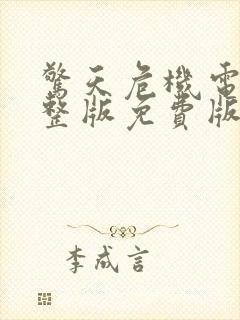 驚天危機電
整版免費版
李成言